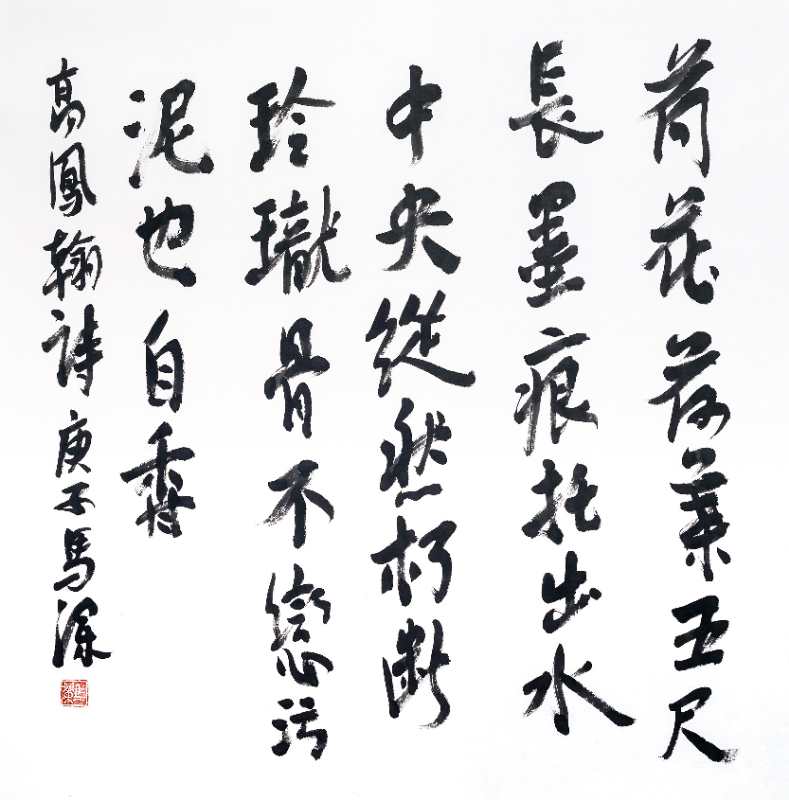 荷花荷葉五尺
長墨痕托出水
中央縱然朽斷
玲瓏骨不戀污
泥也自香
高鳳翰詩庚子馬深